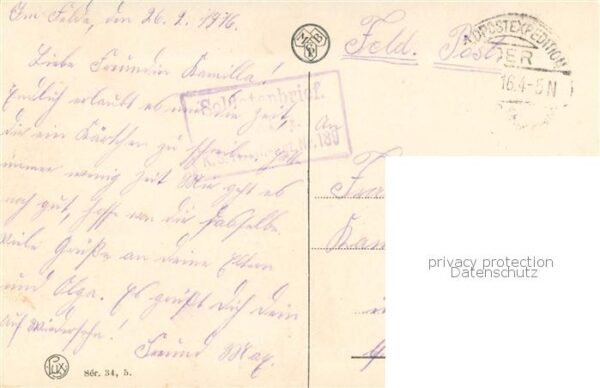 Im Felde, den 26.2.1916.
Liebe Freundin Kamilla!
Endlich erlaubt es mir die Zeit,
dir ein Kärtchen zu schreiben. Habe
immer wenig Zeit Mir geht es
noch gut, hoffe von dir dasselbe.
Viele Grüße an deine Eltern
und Olga. Es grüßt Dich Dein
Freund Max.
Auf Wiedersehn!
Feld. Post
An
Soldatenbrief.
Nr. 180
FELDPOSTEXPEDITION
16.4-5N
privacy protection
Datenschutz
LUX
Sér. 34, 5.